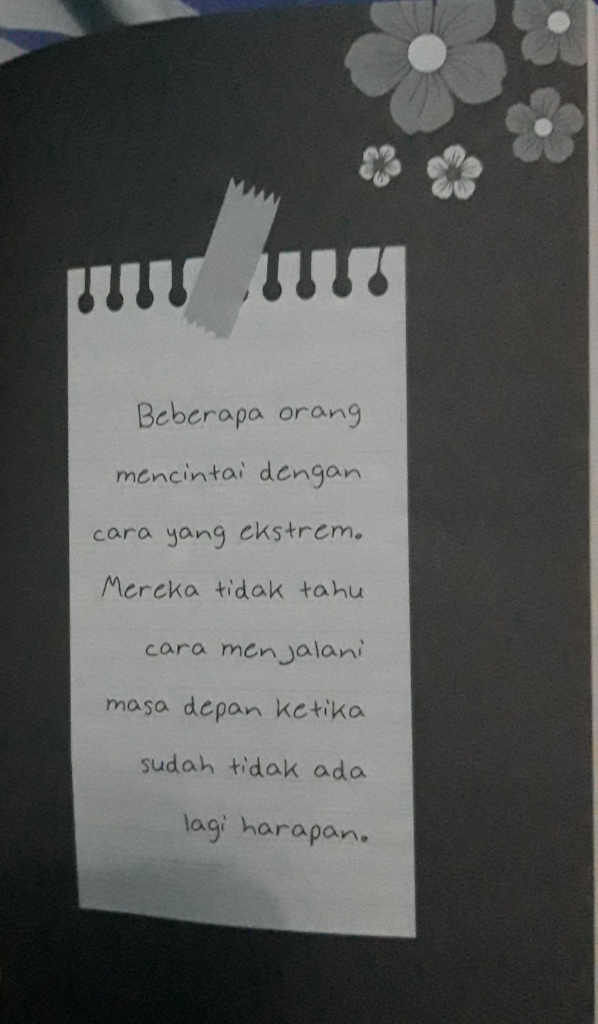 Beberapa orang
mencintai dengan
cara yang ekstrem.
Mereka tidak tahu
cara menjalani
masa depan ketika
sudah tidak ada
lagi harapan.